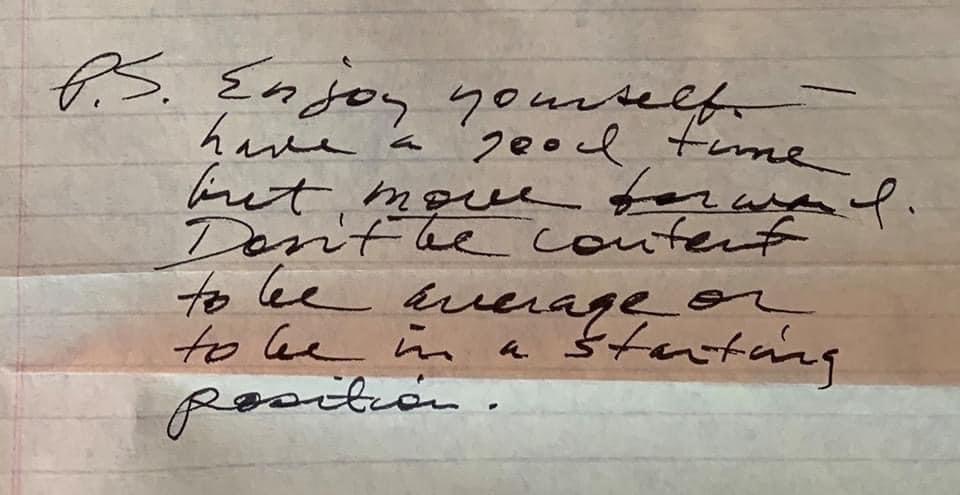 P.S. Enjoy yourself. —
have a good time
but move forward.
Don't be content
to be average or
to be in a starting
position.